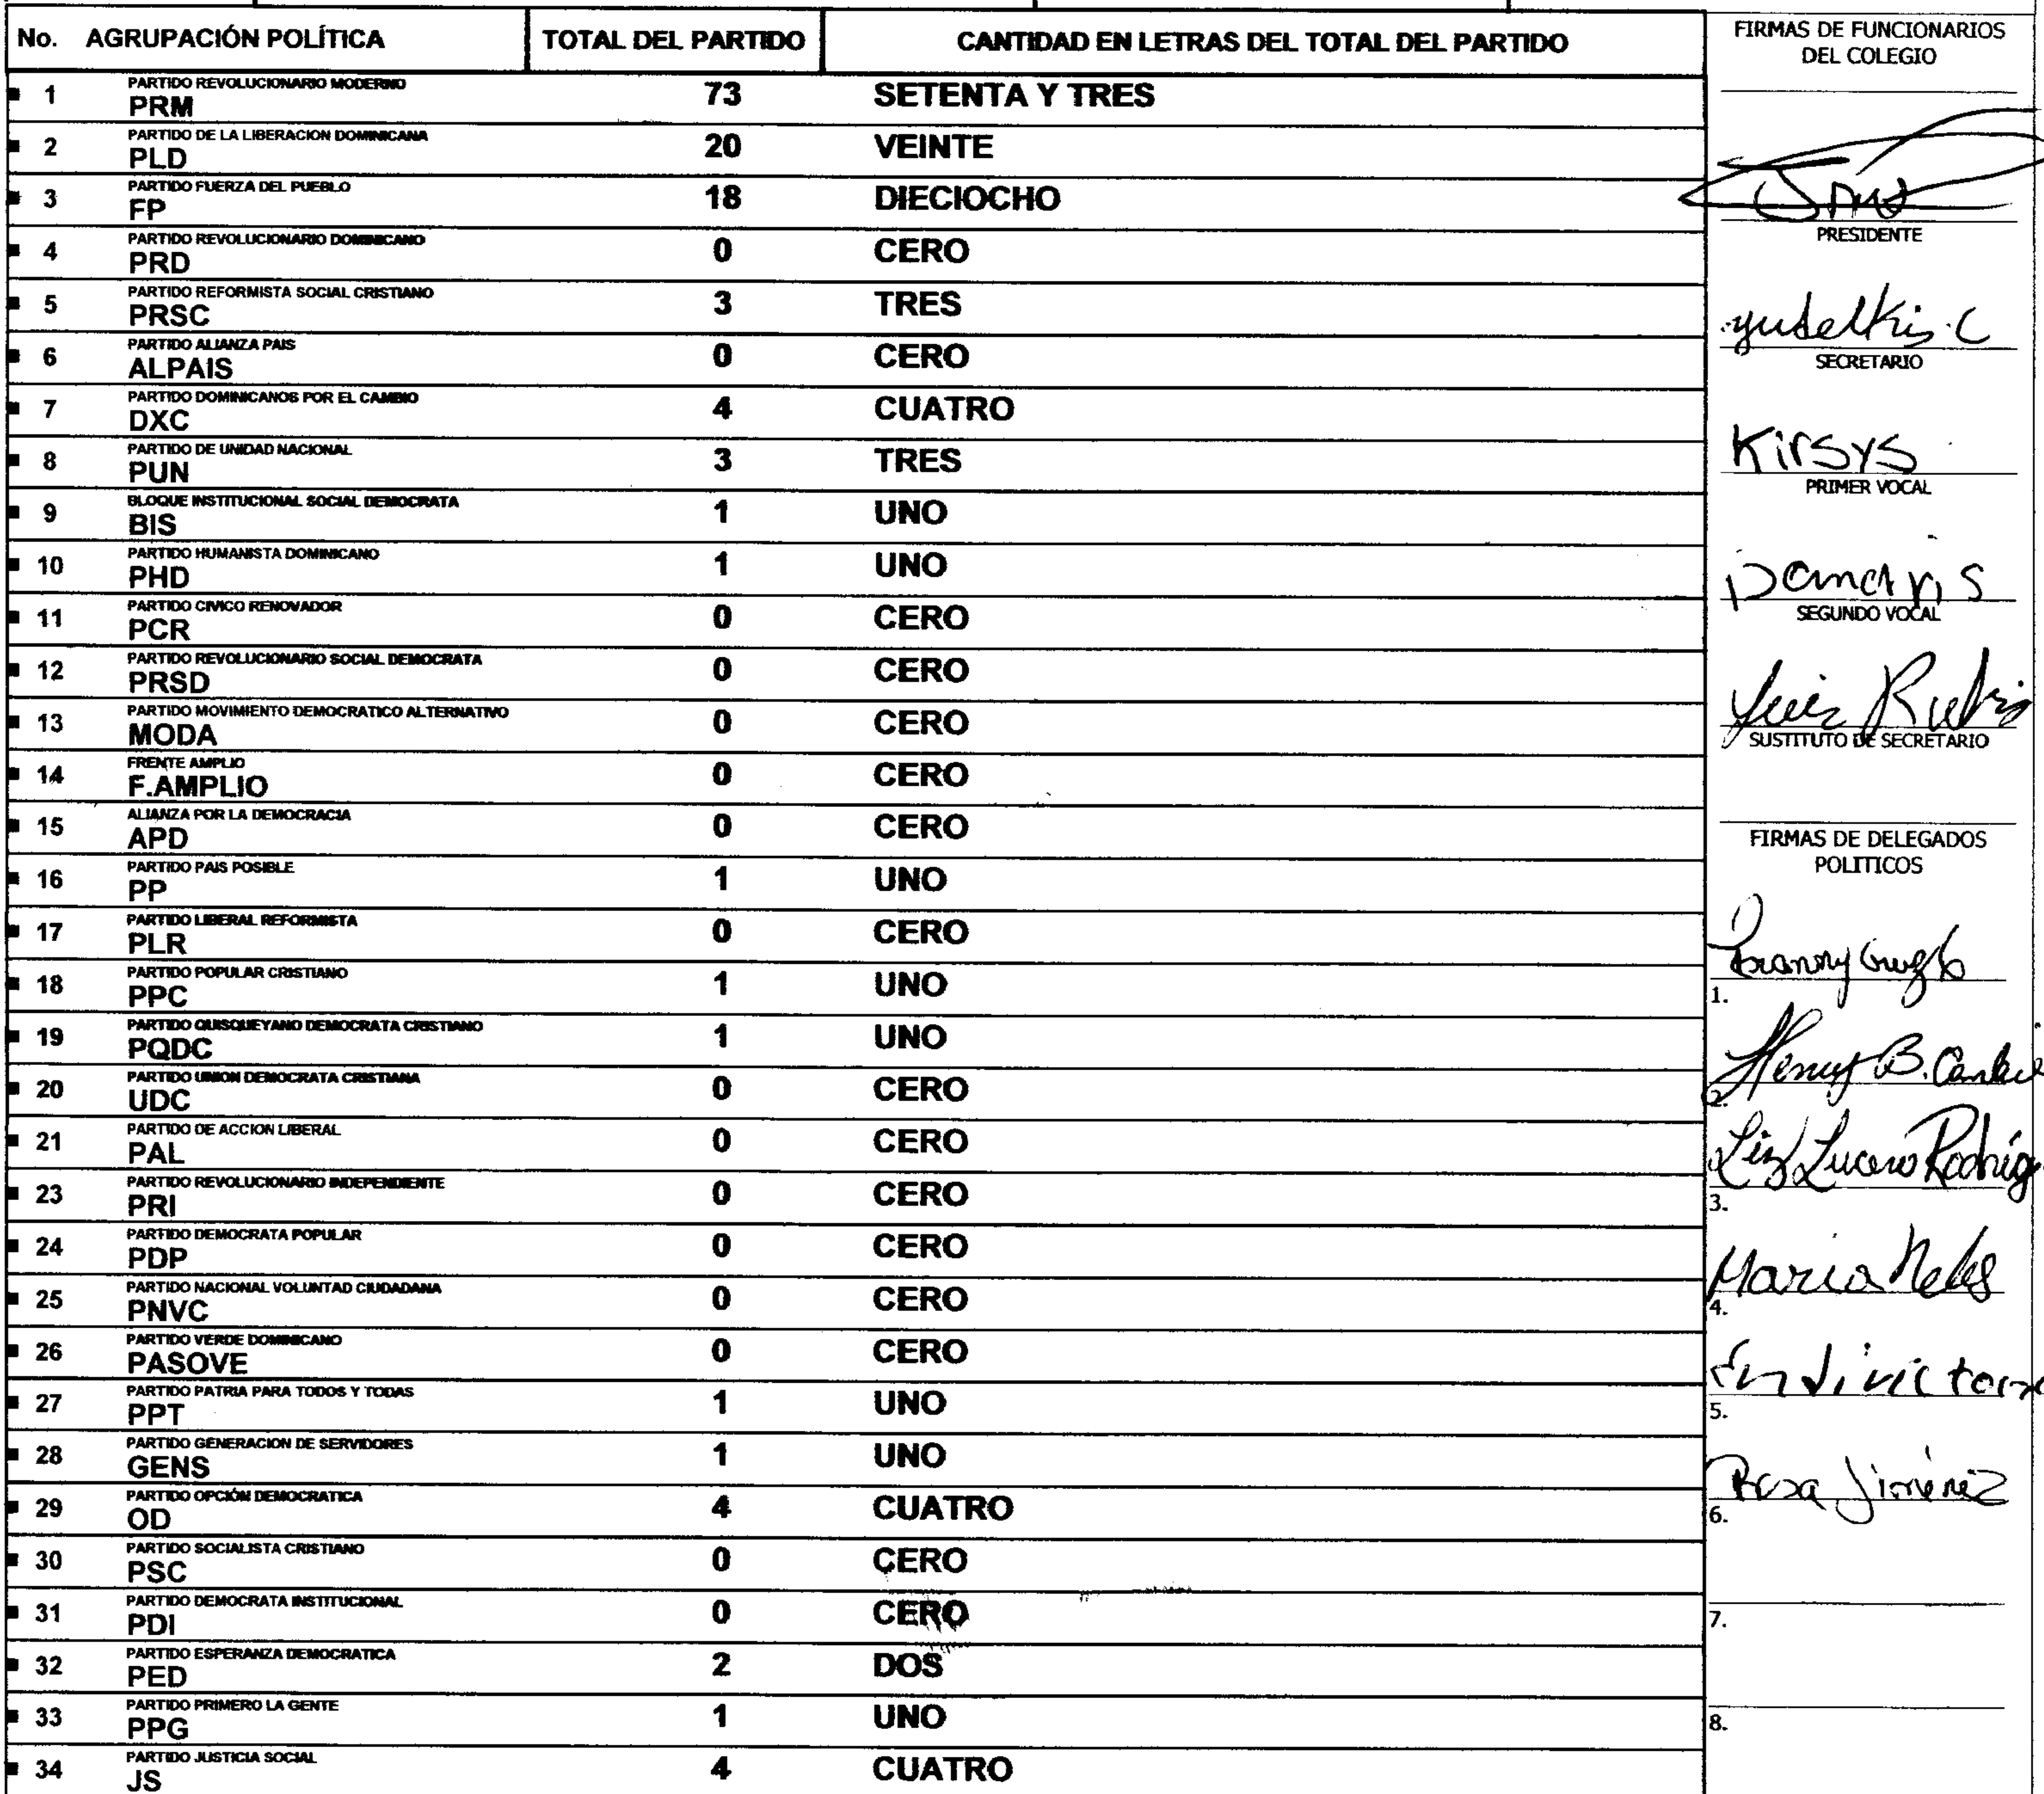 No. AGRUPACIÓN POLÍTICA TOTAL DEL PARTIDO CANTIDAD EN LETRAS DEL TOTAL DEL PARTIDO
PARTIDO REVOLUCIONARIO MODERNO
1 PRM 73 SETENTA Y TRES
PARTIDO DE LA LIBERACION DOMINICANA
2 PLD 20 VEINTE
PARTIDO FUERZA DEL PUEBLO
3 FP 18 DIECIOCHO
PARTIDO REVOLUCIONARIO DOMINICANO
4 PRD 0 CERO
PARTIDO REFORMISTA SOCIAL CRISTIANO
5 PRSC 3 TRES
PARTIDO ALIANZA PAIS
6 ALPAIS 0 CERO
PARTIDO DOMINICANOS POR EL CAMBIO
7 DXC 4 CUATRO
PARTIDO DE UNIDAD NACIONAL
8 PUN 3 TRES
BLOQUE INSTITUCIONAL SOCIAL DEMOCRATA
9 BIS 1 UNO
PARTIDO HUMANISTA DOMINICANO
10 PHD 1 UNO
PARTIDO CIVICO RENOVADOR
11 PCR 0 CERO
PARTIDO REVOLUCIONARIO SOCIAL DEMOCRATA
12 PRSD 0 CERO
PARTIDO MOVIMIENTO DEMOCRATICO ALTERNATIVO
13 MODA 0 CERO
FRENTE AMPLIO
14 F.AMPLIO 0 CERO
ALIANZA POR LA DEMOCRACIA
15 APD 0 CERO
PARTIDO PAIS POSIBLE
16 PP 1 UNO
PARTIDO LIBERAL REFORMISTA
17 PLR 0 CERO
PARTIDO POPULAR CRISTIANO
18 PPC 1 UNO
PARTIDO QUISQUEYANO DEMOCRATA CRISTIANO
19 PQDC 1 UNO
PARTIDO UNION DEMOCRATA CRISTIANA
20 UDC 0 CERO
PARTIDO DE ACCION LIBERAL
21 PAL 0 CERO
PARTIDO REVOLUCIONARIO INDEPENDIENTE
23 PRI 0 CERO
PARTIDO DEMOCRATA POPULAR
24 PDP 0 CERO
PARTIDO NACIONAL VOLUNTAD CIUDADANA
25 PNVC 0 CERO
PARTIDO VERDE DOMINICANO
26 PASOVE 0 CERO
PARTIDO PATRIA PARA TODOS Y TODAS
27 PPT 1 UNO
PARTIDO GENERACION DE SERVIDORES
28 GENS 1 UNO
PARTIDO OPCIÓN DEMOCRATICA
29 OD 4 CUATRO
PARTIDO SOCIALISTA CRISTIANO
30 PSC 0 CERO
PARTIDO DEMOCRATA INSTITUCIONAL
31 PDI 0 CERO
PARTIDO ESPERANZA DEMOCRATICA
32 PED 2 DOS
PARTIDO PRIMERO LA GENTE
33 PPG 1 UNO
PARTIDO JUSTICIA SOCIAL
34 JS 4 CUATRO
FIRMAS DE FUNCIONARIOS
DEL COLEGIO
PRESIDENTE
yudelkis C
SECRETARIO
Kirsys
PRIMER VOCAL
SEGUNDO VOCAL
SUSTITUTO DE SECRETARIO
FIRMAS DE DELEGADOS
POLITICOS
1.
2. Henry B.
3. Liz Lucero Rodrig
4. Maria
5.
6. Rosa Jiménez
7.
8.